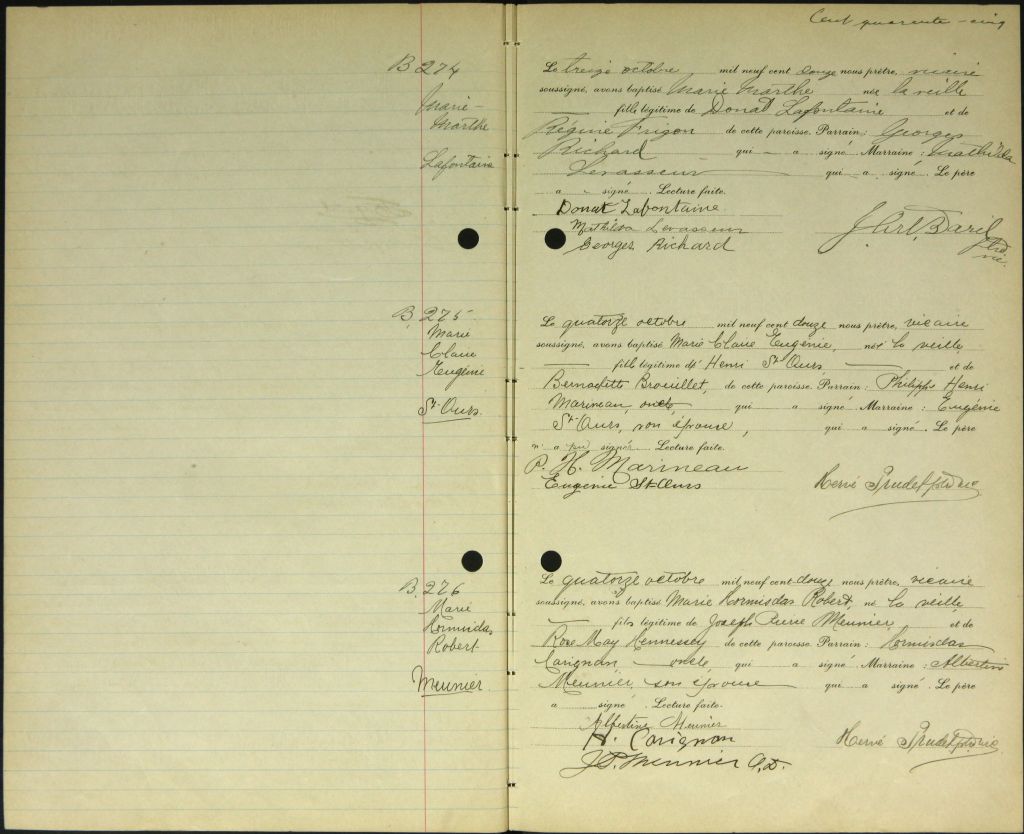 Cent quarante-cinq
B 274
Marie-
Marthe
Lafontaine
Le treize octobre mil neuf cent douze nous prêtre, vicaire
soussigné, avons baptisé Marie Marthe née la veille
fille légitime de Donat Lafontaine et de
Régine Frigon de cette paroisse. Parrain: Georges
Richard qui a signé. Marraine: Mathilda
Levasseur qui a signé. Le père
a signé. Lecture faite.
Donat Lafontaine
Mathilda Levasseur
Georges Richard
B 275
Marie
Claire
Eugénie
St-Ours
Le quatorze octobre mil neuf cent douze nous prêtre, vicaire
soussigné, avons baptisé Marie Claire Eugénie, née la veille,
fille légitime d'Henri St-Ours, et de
Bernadette Brouillet, de cette paroisse. Parrain: Philippe Henri
Marineau, oncle qui a signé Marraine: Eugénie
St-Ours, son épouse, qui a signé. Le père
n'a pu signer. Lecture faite.
P. H. Marineau
Eugenie St-Ours
Hervé Trudel ptre vic
B. 276
Marie
Hormisdas
Robert
Meunier
Le quatorze octobre mil neuf cent douze nous prêtre, vicaire
soussigné, avons baptisé Marie Hormisdas Robert, né la veille,
fils légitime de Joseph Pierre Meunier, et de
Rose May Hennessey de cette paroisse Parrain: Hormisdas
Carignan, oncle, qui a signé Marraine: Albertine
Meunier, son épouse qui a signé. Le père
a signé. Lecture faite.
Albertine Meunier
H. Carignan
J. P. Meunier
Hervé Trudel ptre vic